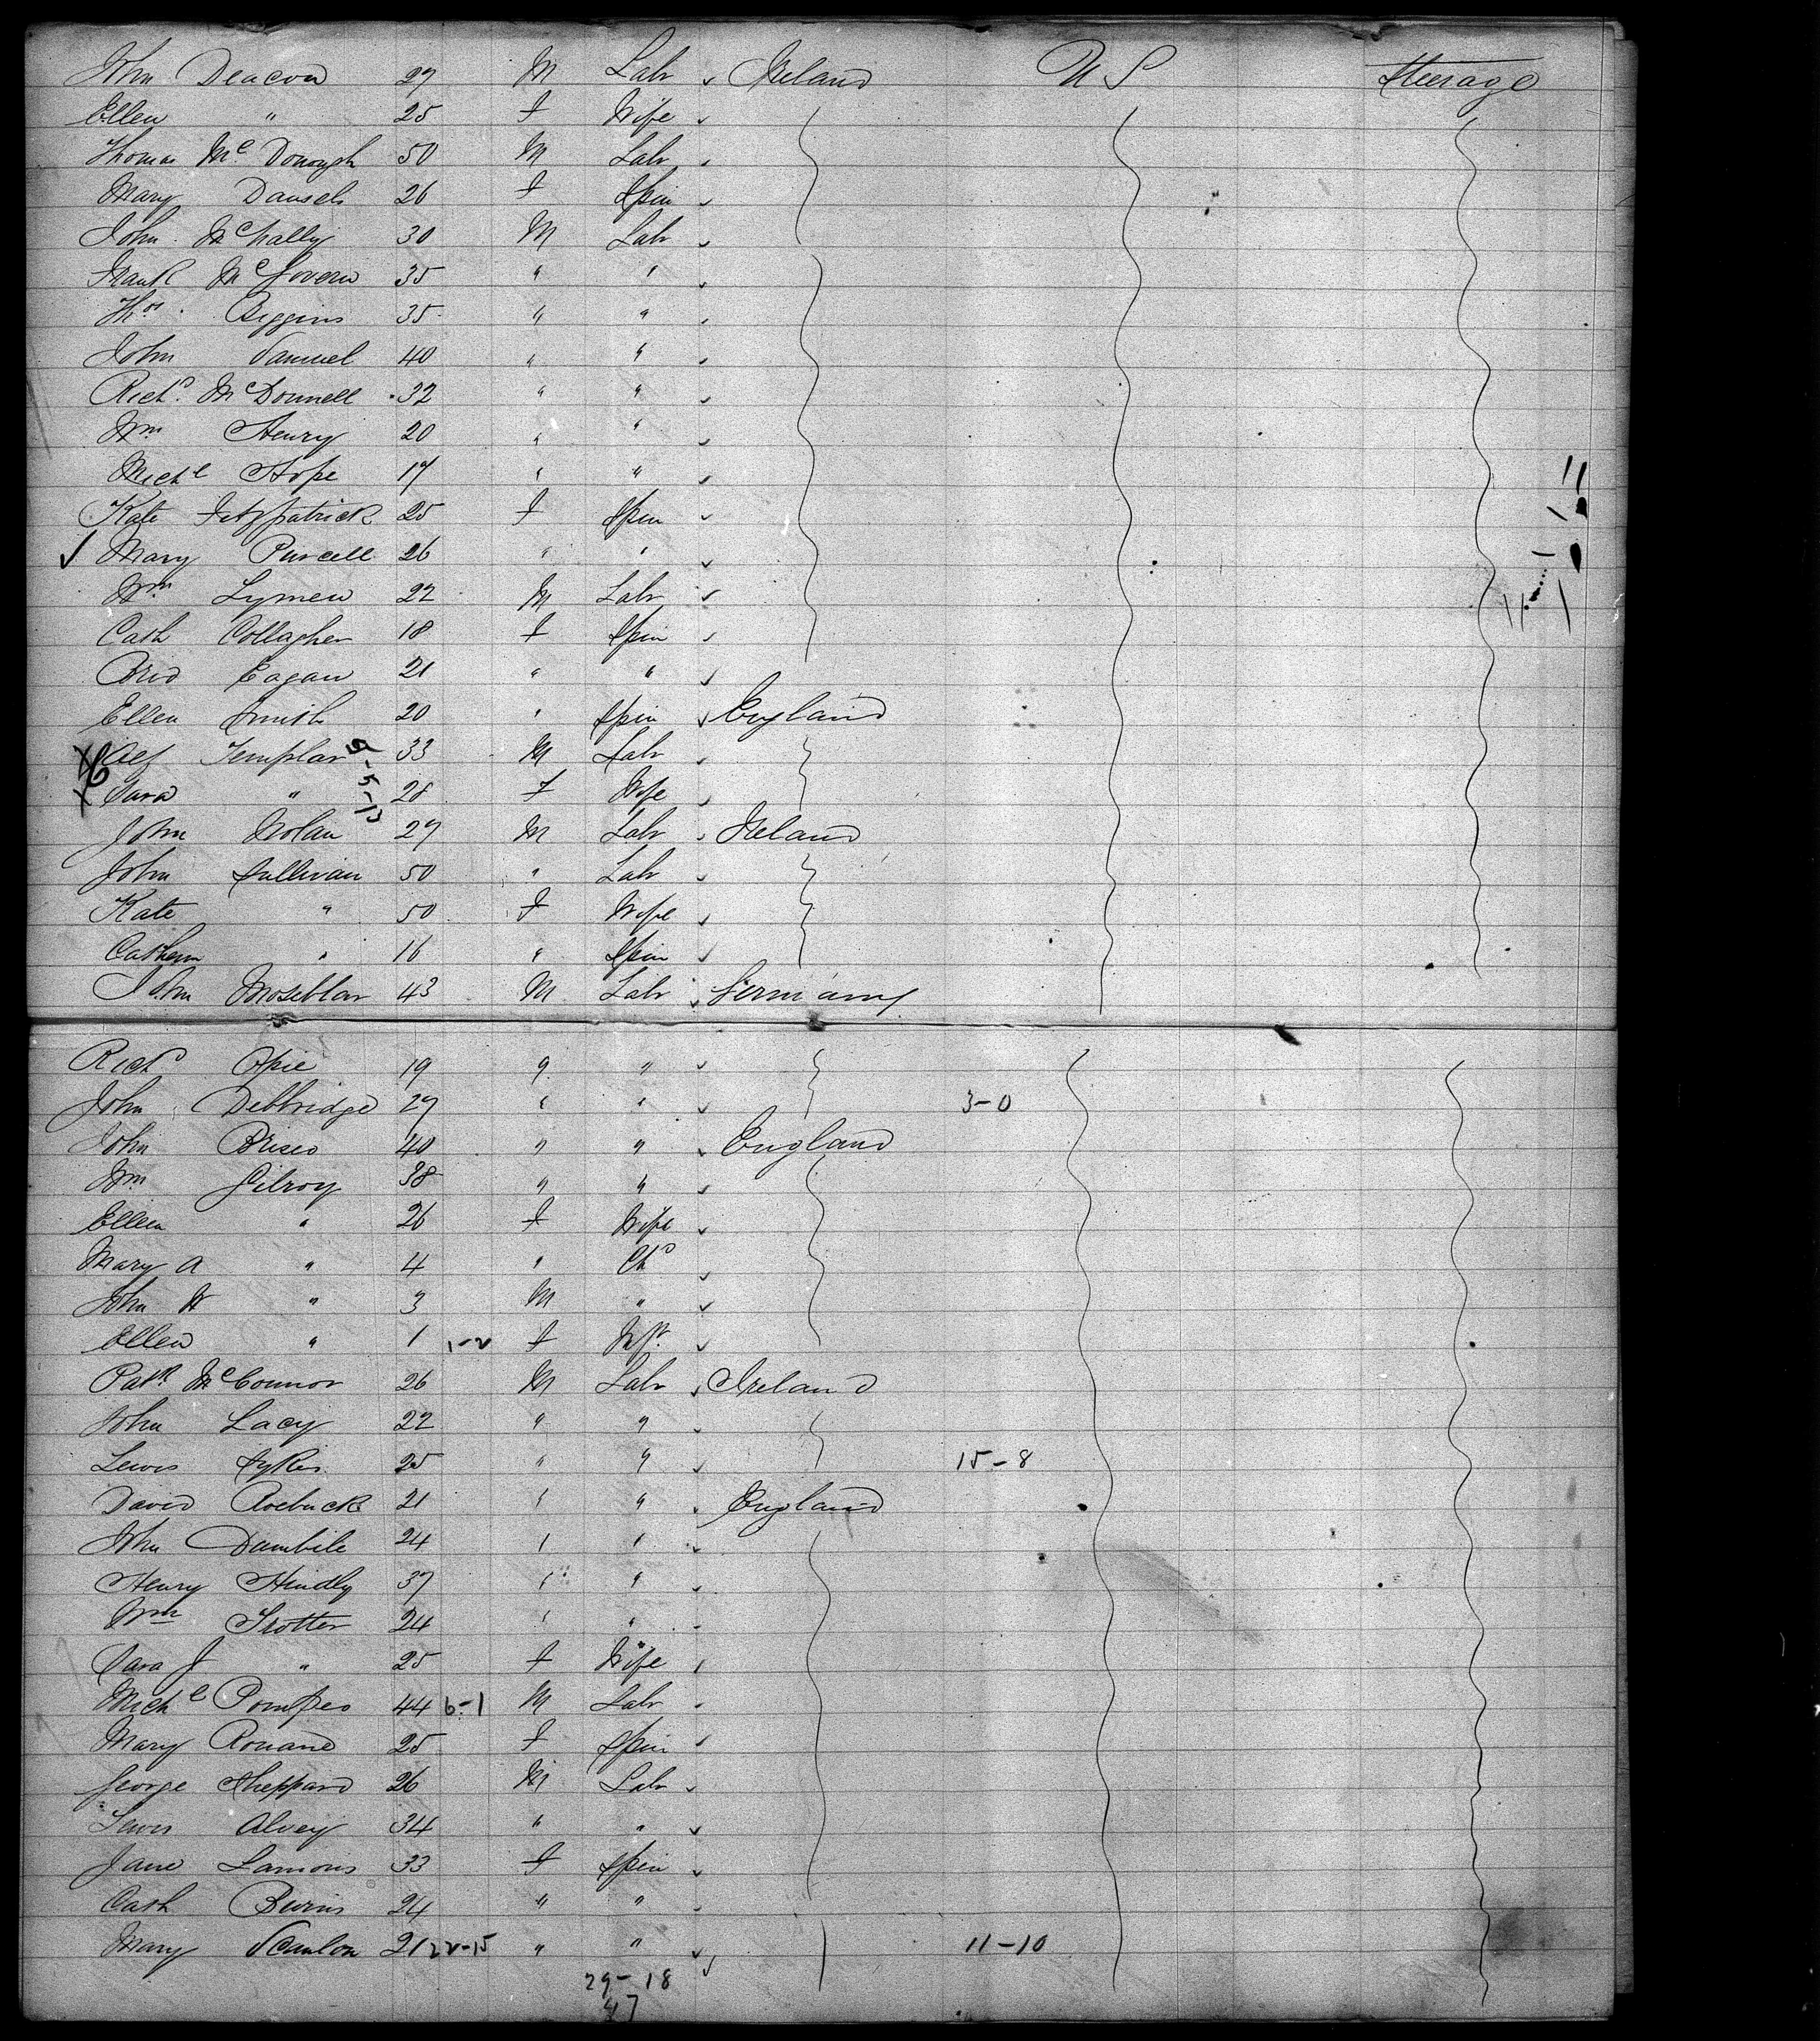 John Deacon 27 M Labr Ireland U S Steerage
Ellen " 25 F Wife
Thomas McDonough 50 M Labr
Mary 26 F Spin
John McNally 30 M Labr
Frank McGovern 35 " "
Thos Biggins 35 " "
John Samuel 40 " "
Richd McDonnell 32 " "
Wm Henry 20 " "
Michl Hope 17 " "
Kate Fitzpatrick 25 F Spin
Mary Purcell 26 " "
Wm Lymen 22 M Labr
Cath Collagher 18 F Spin
Brid Eagan 21 " "
Ellen Smith 20 " Spin England
Alf Templar 33 M Labr
Sara " 28 F Wife
John Nolan 27 M Labr Ireland
John Sullivan 50 " Labr
Kate " 50 F Wife
Cathern " 16 " Spin
John Moseblar 43 M Labr Germany
Richd Opie 19 " "
John Debbridge 27 " " 3-0
John 40 " " England
Wm Gilroy 38 " "
Ellen " 26 F Wife
Mary A " 4 " Chd
John W " 3 M "
Ellen " 1 1-2 F Inft
Patk McConnor 26 M Labr Ireland
John Lacy 22 " "
Lewis Sykes 25 " " 15-8
David Roebuck 21 " " England
John Dumbile 24 " "
Henry Hindly 37 " "
Wm Trotter 24 " "
Sara J " 25 F Wife
Michl 44 6-1 M Labr
Mary Rouane 25 F Spin
George Sheppard 26 M Labr
Lewis Alvey 34 " "
Jane Lamons 33 F Spin
Cath Burns 24 " "
Mary Scanlon 21 22-15 " " 11-10
29-18
47